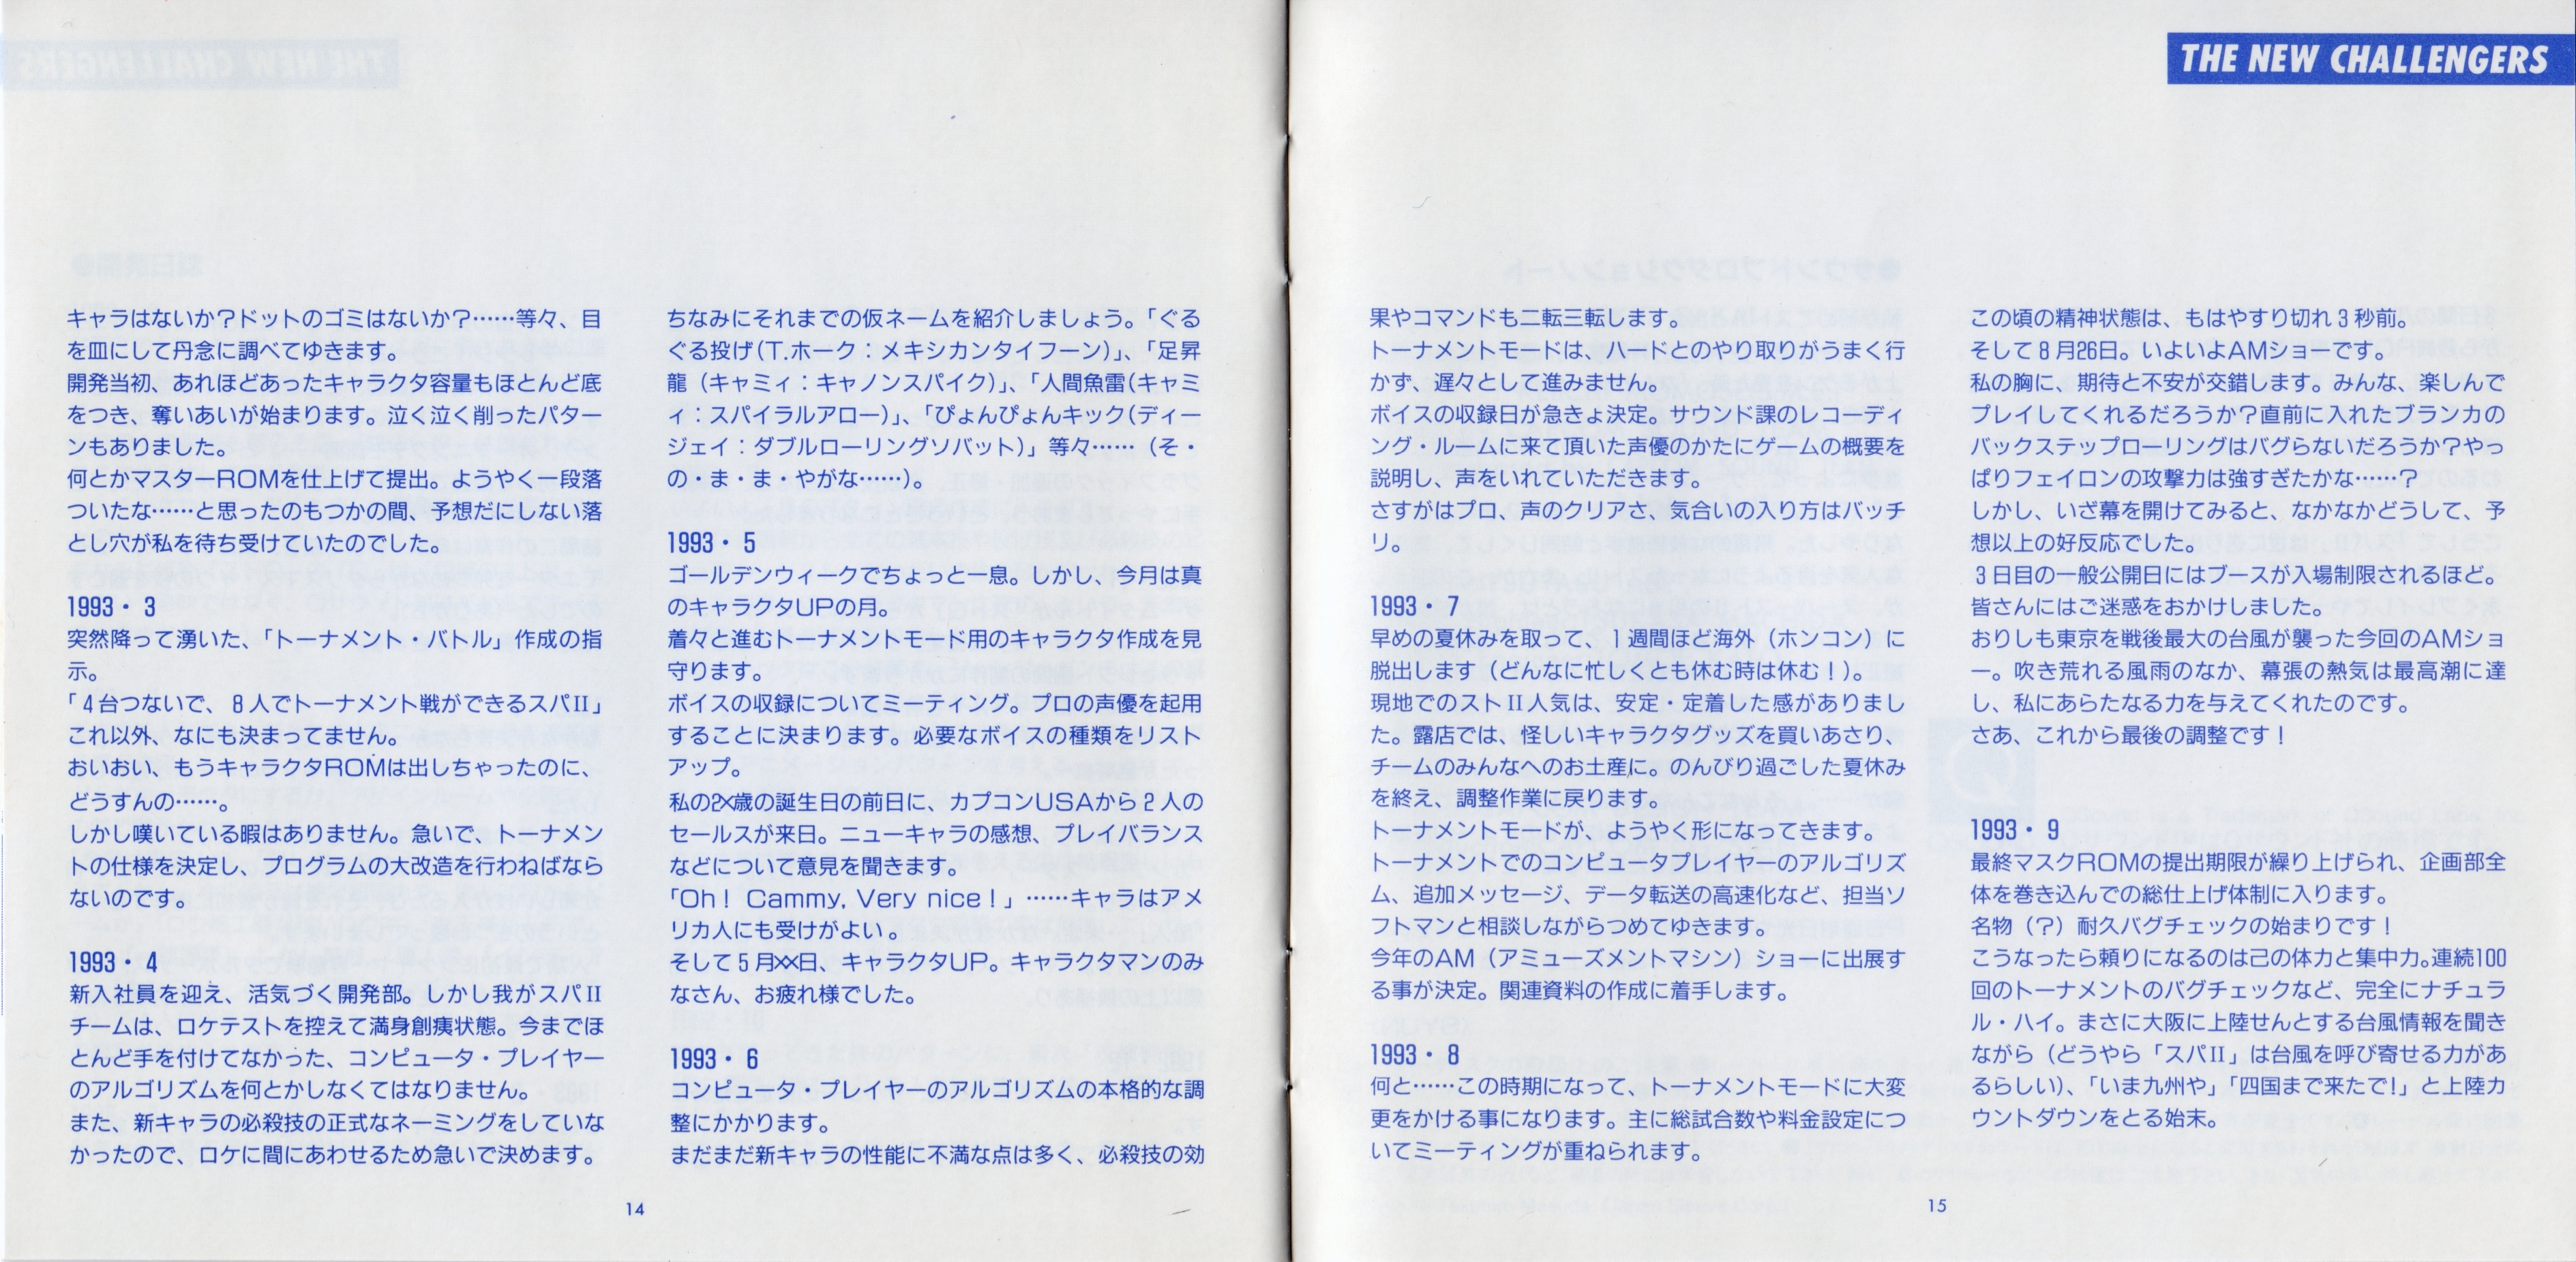 THE NEW CHALLENGERS
キャラはないか？ドットのゴミはないか？……等々、目
を皿にして丹念に調べてゆきます。
開発当初、あれほどあったキャラクタ容量もほとんど底
をつき、奪いあいが始まります。泣く泣く削ったパター
ンもありました。
何とかマスターROMを仕上げて提出。ようやく一段落
ついたな……と思ったのもつかの間、予想だにしない落
とし穴が私を待ち受けていたのでした。
1993・3
突然降って湧いた、「トーナメント・バトル」作成の指
示。
「4台つないで、8人でトーナメント戦ができるスパII」
これ以外、なにも決まってません。
おいおい、もうキャラクタROMは出しちゃったのに、
どうすんの……。
しかし嘆いている暇はありません。急いで、トーナメン
トの仕様を決定し、プログラムの大改造を行わねばなら
ないのです。
1993・4
新入社員を迎え、活気づく開発部。しかし我がスパII
チームは、ロケテストを控えて満身創痍状態。今までほ
とんど手を付けてなかった、コンピュータ・プレイヤー
のアルゴリズムを何とかしなくてはなりません。
また、新キャラの必殺技の正式なネーミングをしていな
かったので、ロケに間にあわせるため急いで決めます。
ちなみにそれまでの仮ネームを紹介しましょう。「ぐる
ぐる投げ（T.ホーク：メキシカンタイフーン）」、「足昇
龍（キャミィ：キャノンスパイク）」、「人間魚雷（キャミ
ィ：スパイラルアロー）」、「ぴょんぴょんキック（ディー
ジェイ：ダブルローリングソバット）」等々……（そ・
の・ま・ま・やがな……）。
1993・5
ゴールデンウィークでちょっと一息。しかし、今月は真
のキャラクタUPの月。
着々と進むトーナメントモード用のキャラクタ作成を見
守ります。
ボイスの収録についてミーティング。プロの声優を起用
することに決まります。必要なボイスの種類をリスト
アップ。
私の2×歳の誕生日の前日に、カプコンUSAから2人の
セールスが来日。ニューキャラの感想、プレイバランス
などについて意見を聞きます。
「Oh！ Cammy, Very nice！」……キャラはアメ
リカ人にも受けがよい。
そして5月××日、キャラクタUP。キャラクタマンのみ
なさん、お疲れ様でした。
1993・6
コンピュータ・プレイヤーのアルゴリズムの本格的な調
整にかかります。
まだまだ新キャラの性能に不満な点は多く、必殺技の効
14
果やコマンドも二転三転します。
トーナメントモードは、ハードとのやり取りがうまく行
かず、遅々として進みません。
ボイスの収録日が急きょ決定。サウンド課のレコーディ
ング・ルームに来て頂いた声優のかたにゲームの概要を
説明し、声をいれていただきます。
さすがはプロ、声のクリアさ、気合いの入り方はバッチ
リ。
1993・7
早めの夏休みを取って、1週間ほど海外（ホンコン）に
脱出します（どんなに忙しくとも休む時は休む！）。
現地でのストII人気は、安定・定着した感がありまし
た。露店では、怪しいキャラクタグッズを買いあさり、
チームのみんなへのお土産に。のんびり過ごした夏休み
を終え、調整作業に戻ります。
トーナメントモードが、ようやく形になってきます。
トーナメントでのコンピュータプレイヤーのアルゴリズ
ム、追加メッセージ、データ転送の高速化など、担当ソ
フトマンと相談しながらつめてゆきます。
今年のAM（アミューズメントマシン）ショーに出展す
る事が決定。関連資料の作成に着手します。
1993・8
何と……この時期になって、トーナメントモードに大変
更をかける事になります。主に総試合数や料金設定につ
いてミーティングが重ねられます。
この頃の精神状態は、もはやすり切れ3秒前。
そして8月26日。いよいよAMショーです。
私の胸に、期待と不安が交錯します。みんな、楽しんで
プレイしてくれるだろうか？直前に入れたブランカの
バックステップローリングはバグらないだろうか？やっ
ぱりフェイロンの攻撃力は強すぎたかな……？
しかし、いざ幕を開けてみると、なかなかどうして、予
想以上の好反応でした。
3日目の一般公開日にはブースが入場制限されるほど。
皆さんにはご迷惑をおかけしました。
おりしも東京を戦後最大の台風が襲った今回のAMショ
ー。吹き荒れる風雨のなか、幕張の熱気は最高潮に達
し、私にあらたなる力を与えてくれたのです。
さあ、これから最後の調整です！
1993・9
最終マスクROMの提出期限が繰り上げられ、企画部全
体を巻き込んでの総仕上げ体制に入ります。
名物（？）耐久バグチェックの始まりです！
こうなったら頼りになるのは己の体力と集中力。連続100
回のトーナメントのバグチェックなど、完全にナチュラ
ル・ハイ。まさに大阪に上陸せんとする台風情報を聞き
ながら（どうやら「スパII」は台風を呼び寄せる力があ
るらしい）、「いま九州や」「四国まで来たで!」と上陸カ
ウントダウンをとる始末。
15